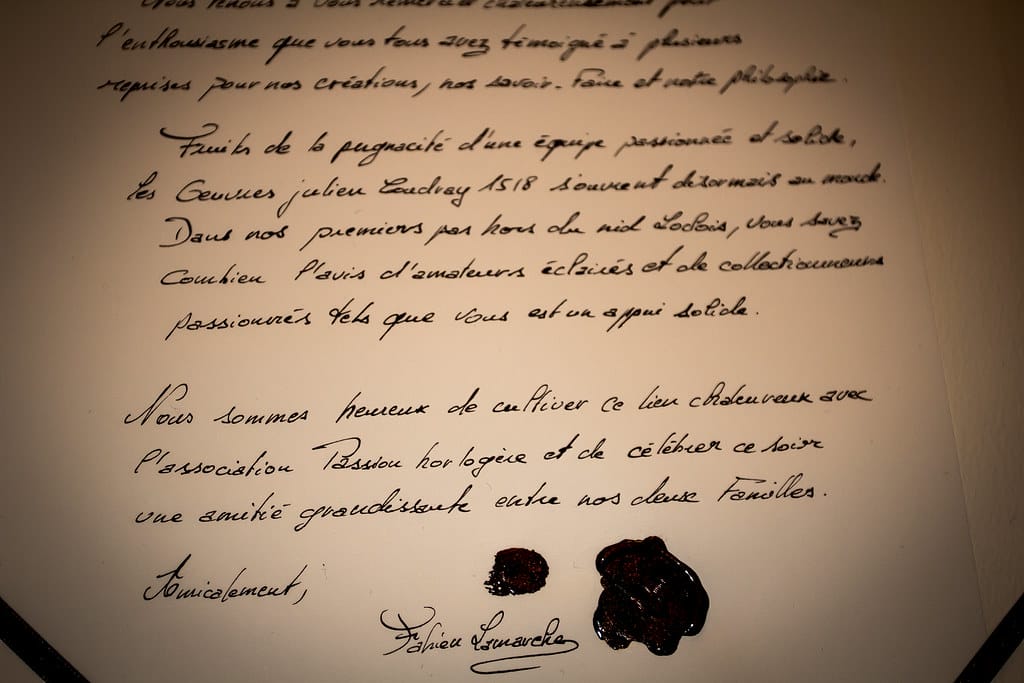 Nous tenons à vous remercier chaleureusement pour
l'enthousiasme que vous tous avez témoigné à plusieurs
reprises pour nos créations, nos savoir-Faire et notre philosophie.
Fruits de la pugnacité d'une équipe passionnée et solide,
les Oeuvres julien Coudray 1518 s'ouvrent désormais au monde.
Dans nos premiers pas hors du nid Loclois, vous savez
combien l'avis d'amateurs éclairés et de collectionneurs
passionnés tels que vous est un appui solide.
Nous sommes heureux de cultiver ce lien chaleureux avec
l'association Passion horlogère et de célébrer ce soir
une amitié grandissante entre nos deux Familles.
Amicalement,
Fabien Lamarche